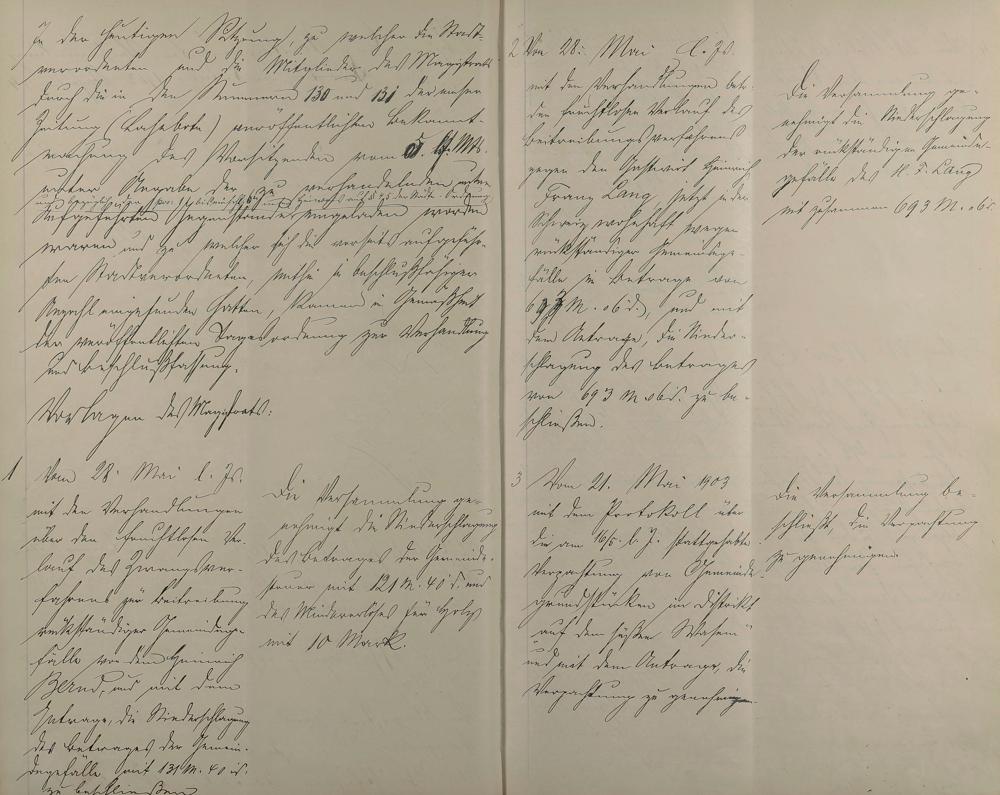 In der heutigen Sitzung, zu welcher die Stadt-
verordneten und die Mitglieder des Magistrats
durch die in den Nummern 130 und 131 der
Zeitung (Lahnbote veröffentlichten Bekannt-
machung des Vorsitzenden vom 5. lf. Mts.
unter Angabe der zu verhandelnden
aufgeführten Gegenstände eingeladen worden
waren und zu welcher sich die vorseits aufgeführ-
ten Stadtverordneten, mithin in beschlußfähiger
Anzahl eingefunden hatten, kamen in Gemäßheit
der veröffentlichten Tagesordnung zur Verhandlung
und Beschlußfassung.
Vorlagen des Magistrats:
1 Vom 28. Mai l. Js.
mit den Verhandlungen
über den fruchtlosen Ver-
lauf des Zwangsver-
fahrens zur Beitreibung
rückständiger Gemeindege-
fälle von dem Heinrich
Bernd, und mit dem
Antrage, die Niederschlagung
des Betrages der Gemein-
degefälle mit 131 M. 40 d.
zu beschließen
Die Versammlung ge-
nehmigt die Niederschlagung
des Betrages der Gemeinde-
steuer mit 121 M. 40 d. und
des Mindererlöses für Holz
mit 10 Mark.
2 Vom 28. Mai l. Js.
mit den Verhandlungen betr.
den fruchtlosen Verlauf des
Beitreibungsverfahrens
gegen den Gastwirt Heinrich
Franz Lang, jetzt in der
Schweiz wohnhaft wegen
rückständiger Gemeindege-
fälle im Betrage von
693 M. 06 d., und mit
dem Antrage, die Nieder-
schlagung des Betrages
von 693 M. 06 d. zu be-
schließen.
Die Versammlung ge-
nehmigt die Niederschlagung
der rückständigen Gemeinde-
gefälle des H. F. Lang
mit zusammen 693 M. 06 d.
3 Vom 21. Mai 1903
mit dem Protokoll über
die am 16/5. l. J. stattgehabte
Verpachtung von Gemeinde-
grundstücken im Distrikt
"auf dem süßen Wasem"
und mit dem Antrage, die
Verpachtung zu genehmigen.
Die Versammlung be-
schließt, die Verpachtung
zu genehmigen.